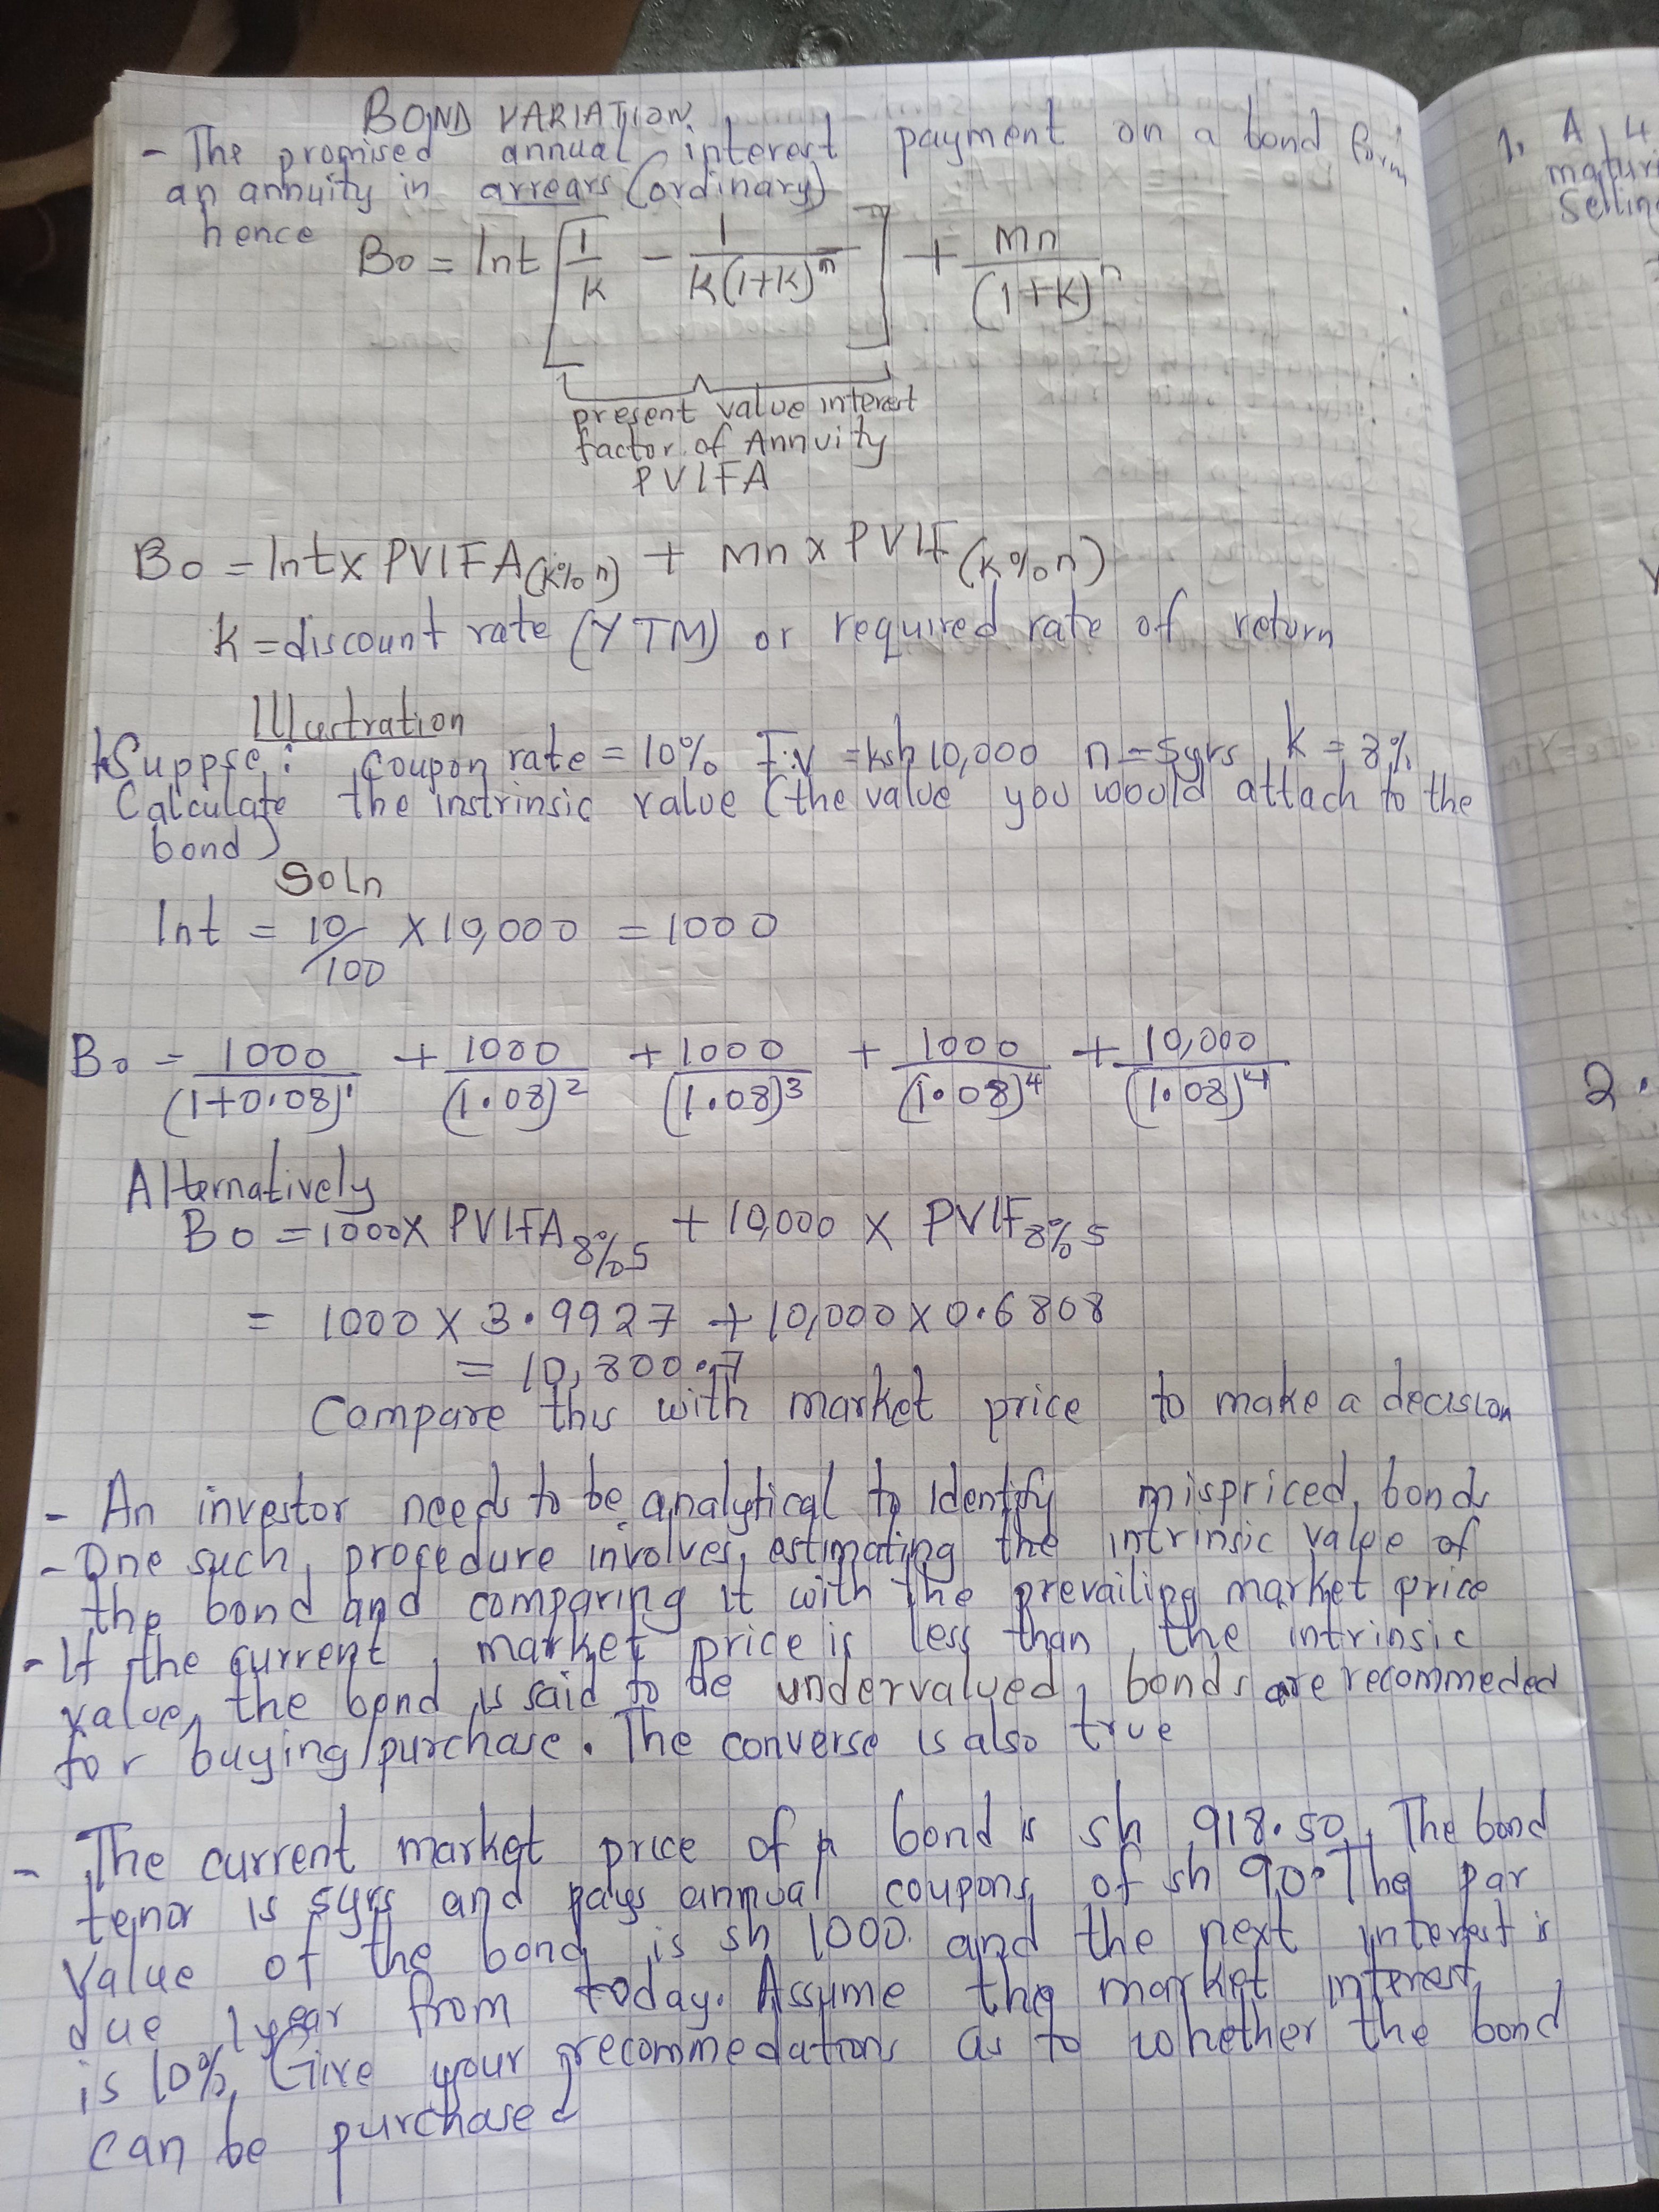 BOND VARIATION
- The promised annual interest payment on a bond form
an annuity in arrears (ordinary)
hence
Bo = Int [1/k - 1/k(1+k)^n] + Mn/(1+k)^n
present value interest
factor of Annuity
PVIFA
Bo = Int x PVIFA(k% n) + Mn x PVIF(k% n)
k = discount rate (YTM) or required rate of return
Illustration
1. Suppse: Coupon rate = 10% F.V = ksh 10,000 n = 5yrs k = 8%
Calculate the instrinsic value (the value you would attach to the
bond)
Soln
Int = 10/100 x 10,000 = 1000
Bo = 1000/(1+0.08)^1 + 1000/(1.08)^2 + 1000/(1.08)^3 + 1000/(1.08)^4 + 10,000/(1.08)^4
Alternatively
Bo = 1000x PVIFA 8% 5 + 10,000 x PVIF 8% 5
= 1000 x 3.9927 + 10,000 x 0.6808
= 10,800.7
Compare this with market price to make a decision
- An investor needs to be analytical to Identify mispriced bonds
- One such procedure involves estimating the intrinsic value of
the bond and comparing it with the prevailing market price
- If the current market price is less than the intrinsic
value, the bond is said to be undervalued, bonds are recommeded
for buying/purchase. The converse is also true
- The current market price of a bond is sh 918.50. The bond
tenor is 5yrs and pays annual coupons of sh 90. The par
Value of the bond is sh 1000 and the next interest is
due 1year from today. Assume the market interest
is 10%. Give your recommedations as to whether the bond
can be purchased
1. A 4
maturi
Selling
2.